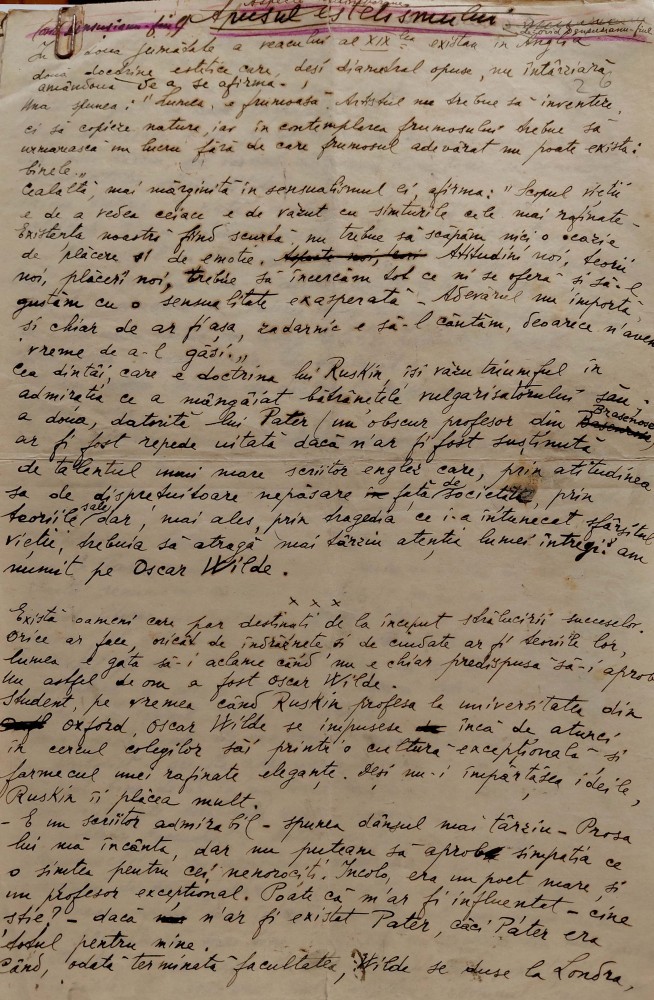 Apusul estetismului
de Ovid Densusianu-fiul
În a doua jumătate a veacului al XIX lea existau în Anglia
două doctrine estetice care, deși diametral opuse, nu întârziară
amândouă de a se afirma.
Una spunea: "Lumea e frumoasă. Artistul nu trebue să inventeze,
ci să copieze natura, iar în contemplarea frumosului trebue să
urmărească un lucru fără de care frumosul adevărat nu poate exista:
binele"
Cealaltă, mai mărginită în sensualismul ei, afirma: "Scopul vieții
e de a vedea ceiace e de văzut cu simțurile cele mai rafinate -
Existența noastră fiind scurtă, nu trebue să scăpăm nici o ocazie
de plăcere și de emoție. Atitudini noi, teorii
noi, plăceri noi, trebue să încercăm tot ce ni se oferă și să-l
gustăm cu o sensualitate exasperată - Adevărul nu importă,
și chiar de ar fi așa, zadarnic e să-l căutăm, deoarece n'avem
vreme de a-l găsi."
Cea dintâi, care e doctrina lui Ruskin, își văzu triumful în
admirația ce a mângâiat bătrânețele vulgarisatorului său -
a doua, datorită lui Pater (un obscur profesor din Brasenose)
ar fi fost repede uitată dacă n'ar fi fost susținută
de talentul unui mare scriitor englez care, prin atitudinea
sa de disprețuitoare nepăsare față de societate, prin
teoriile sale, dar, mai ales, prin tragedia ce i-a întunecat sfârșitul
vieții, trebuia să atragă mai târziu atenția lumei întregi: am
numit pe Oscar Wilde.
x x x
Există oameni care par destinați de la început strălucirii succeselor.
Orice ar face, oricât de îndrăznețe și de ciudate ar fi teoriile lor,
lumea e gata să-i aclame când nu e chiar predispusă să-i aprobe
Un astfel de om a fost Oscar Wilde.
Student, pe vremea când Ruskin profesa la universitatea din
Oxford, Oscar Wilde se impusese încă de atunci
în cercul colegilor săi printr'o cultură excepțională și
farmecul unei rafinate eleganțe. Deși nu-i împărtășea ideile,
Ruskin îi plăcea mult.
- E un scriitor admirabil - spunea dânsul mai târziu - Proza
lui mă încânta, dar nu puteam să aprob simpatia ce
o simțea pentru cei nenorociți. Încolo, era un poet mare, și
un profesor excepțional. Poate că m'ar fi influențat - cine
știe? - dacă n'ar fi existat Pater, căci Pater era
totul pentru mine.
Când, odată terminată facultatea, Wilde se duse la Londra,